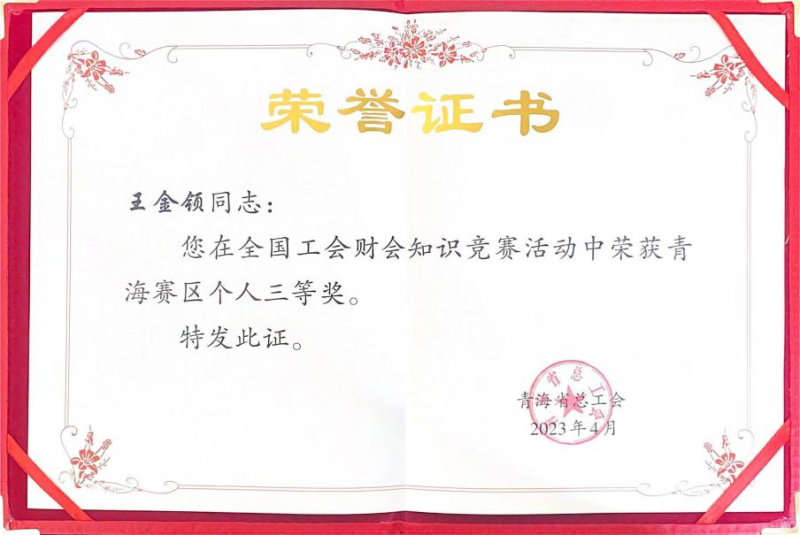 荣誉证书
王金领同志：
您在全国工会财会知识竞赛活动中荣获青
海赛区个人三等奖。
特发此证。
青海省总工会
2023年4月